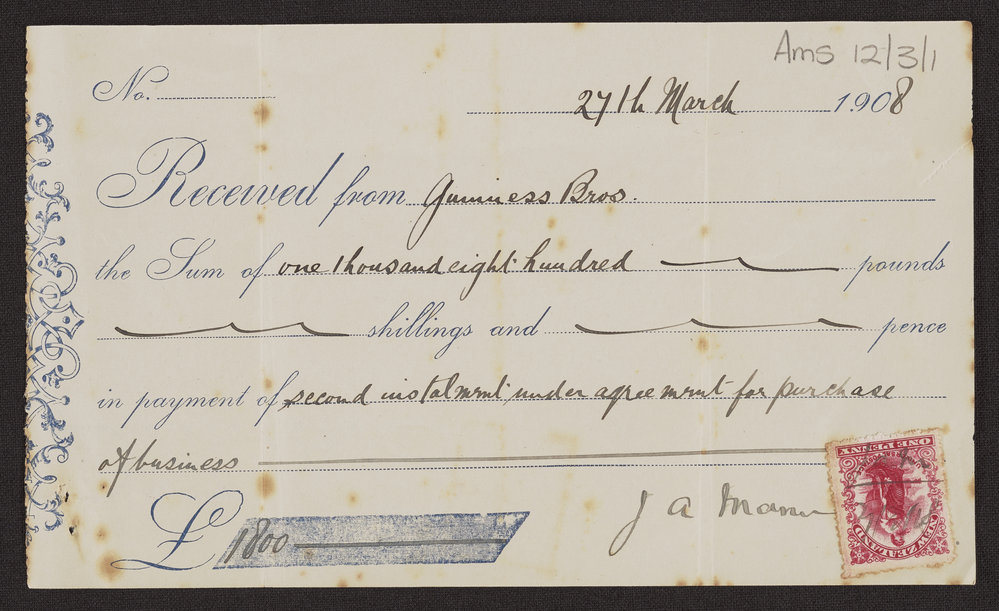 Ams 12/3/1
No.
27th March 1908
Received from Guinness Bros.
the Sum of one thousand eight hundred pounds
shillings and pence
in payment of second instalment under agreement for purchase
of business
£ 1800
J A Mann
ONE PENNY
NEW ZEALAND